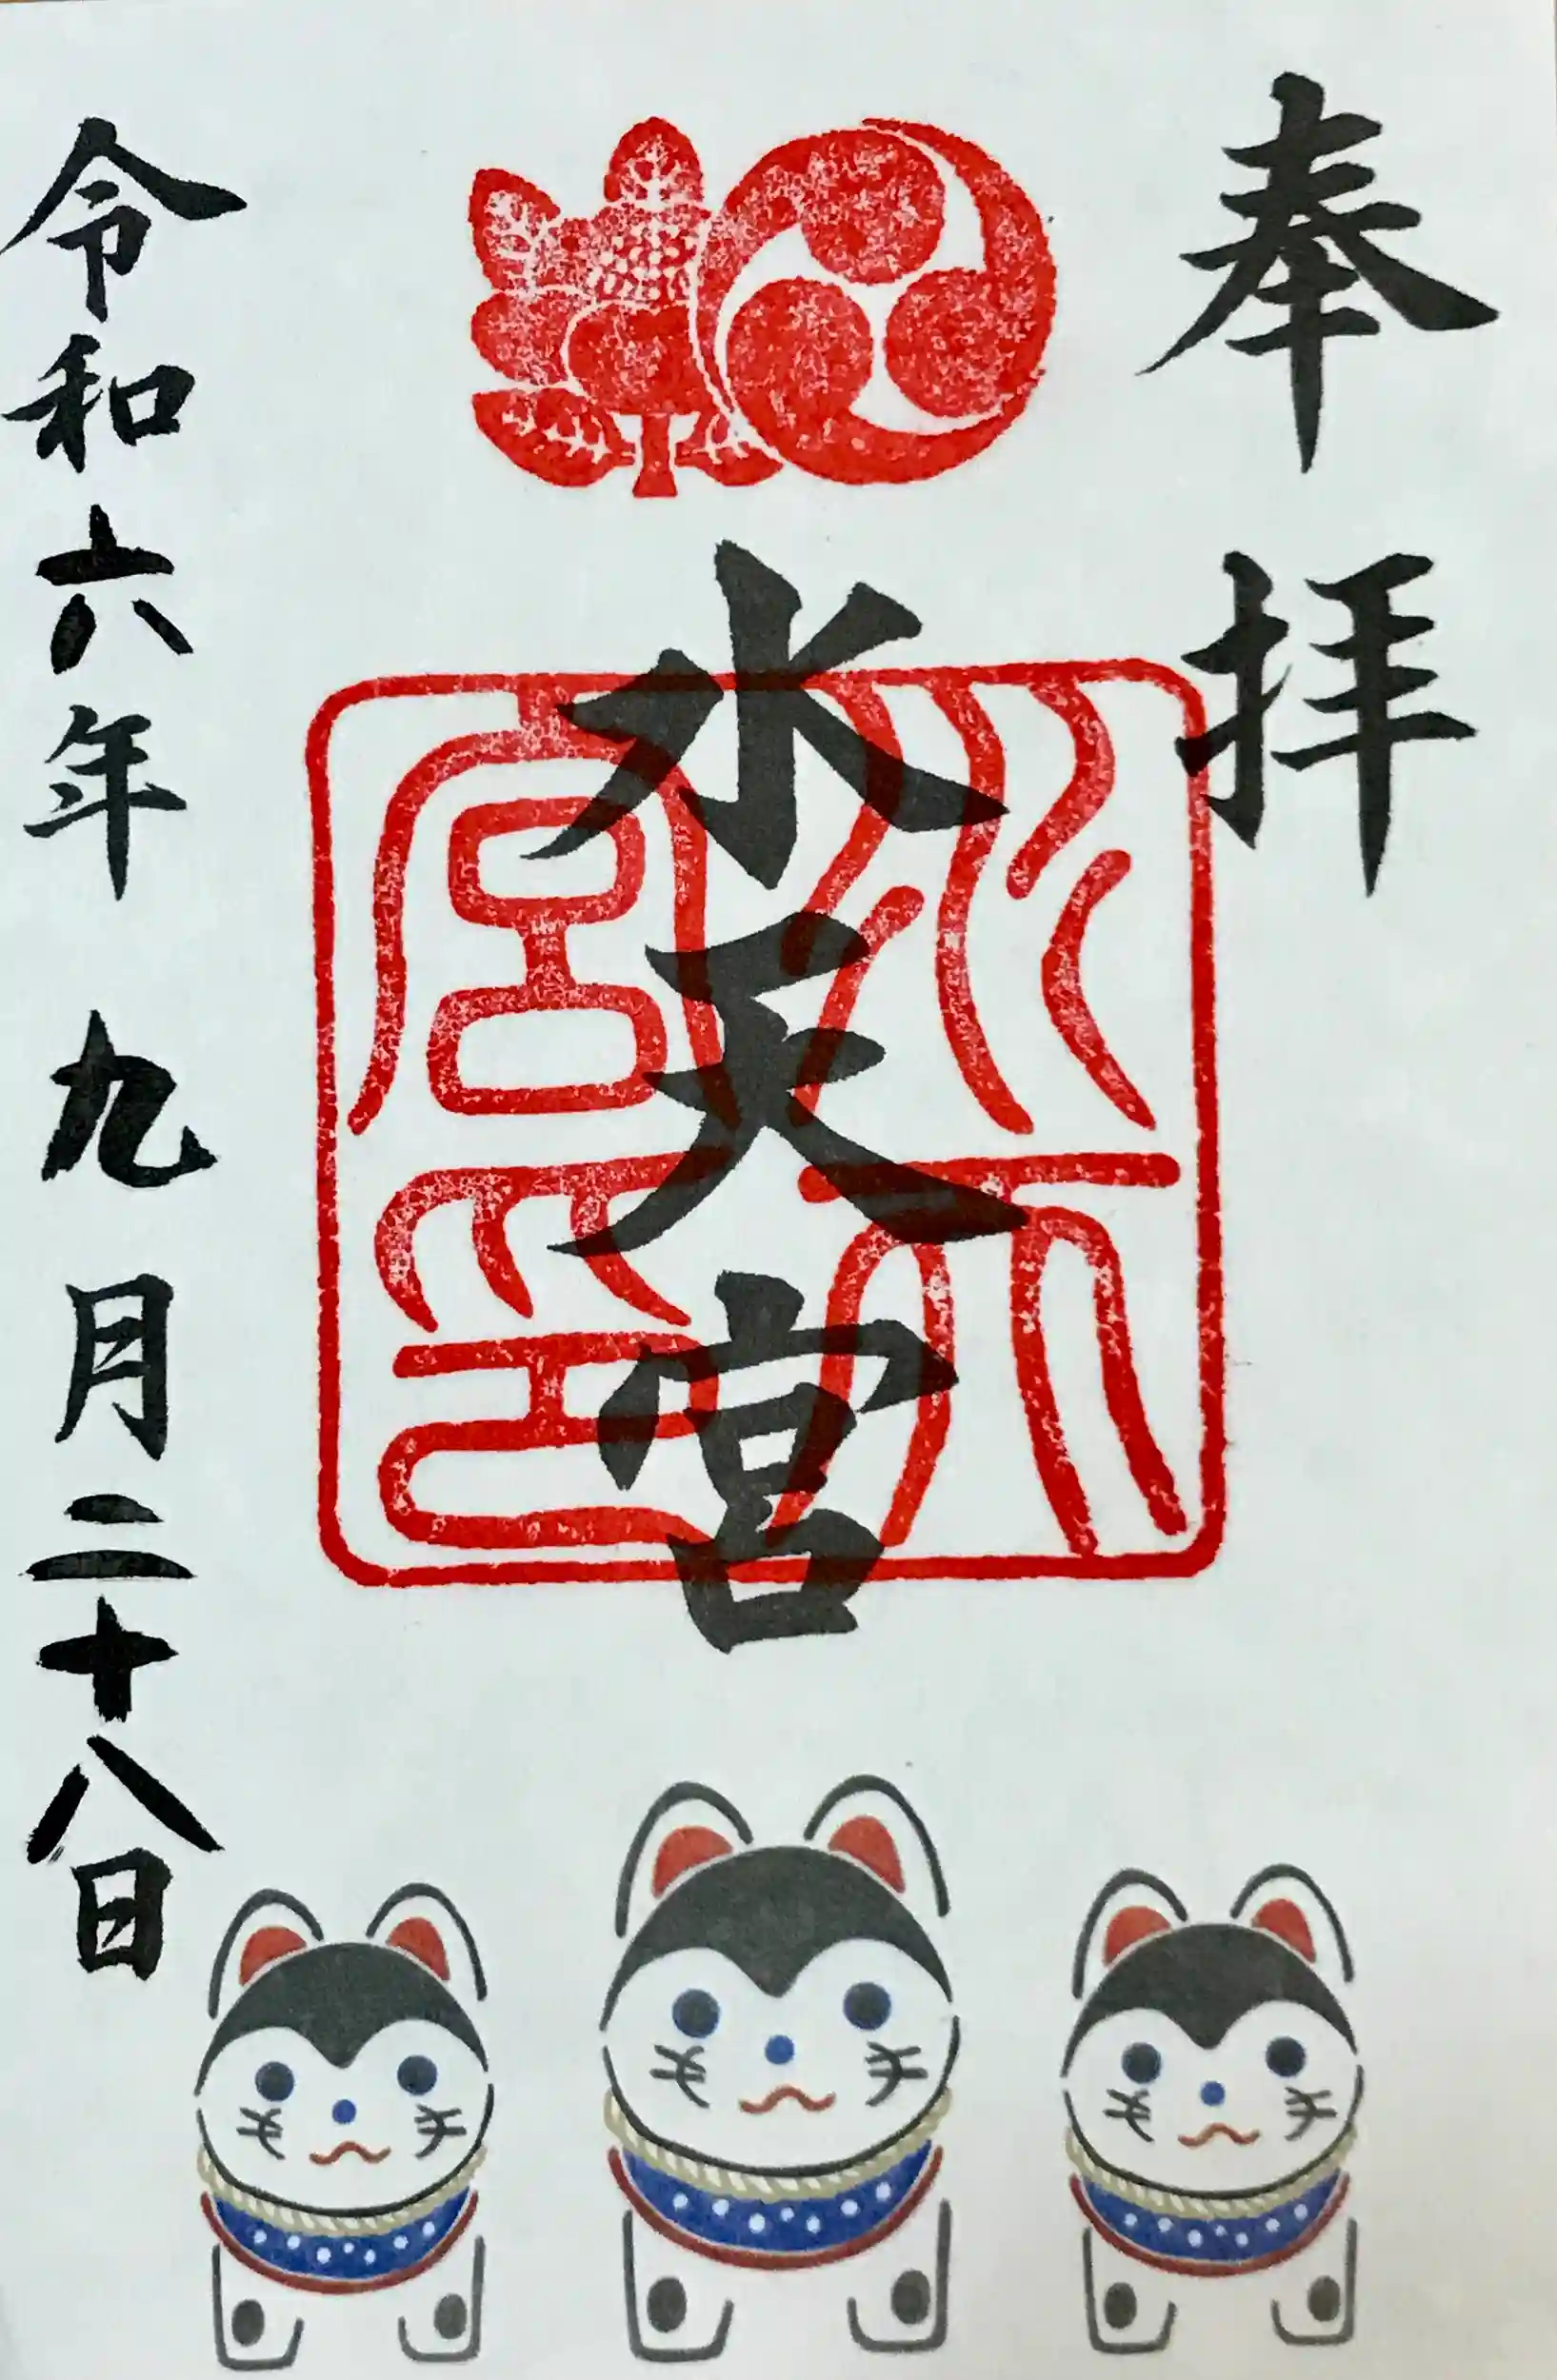 奉拝
水天宮
水天宮印
令和六年 九月二十八日